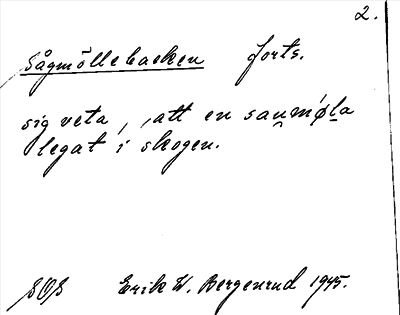 2.
Sågmöllebacken forts.
sig veta, att en sau̯mø̀la
legat i skogen.
SOS Erik W. Bergenrud 1945.